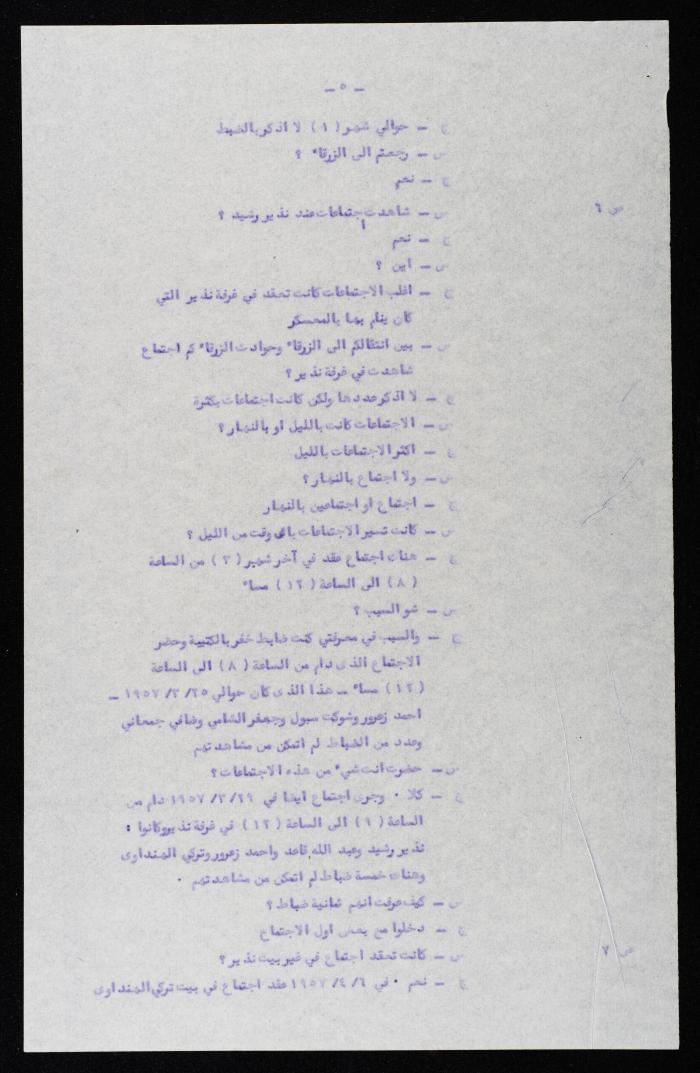 - ٥ -
ج - حوالي شهر (١) لا اذكر بالضبط
س - رجعتم الى الزرقاء ؟
ج - نعم
ص ٦
س - شاهدت اجتماعات عند نذير رشيد ؟
ج - نعم
س - اين ؟
ج - اغلب الاجتماعات كانت تعقد في غرفة نذير التي
كان ينام بها بالمعسكر
س - بين انتقالكم الى الزرقاء وحوادث الزرقاء كم اجتماع
شاهدت في غرفة نذير ؟
ج - لا اذكر عددها ولكن كانت اجتماعات بكثرة
س - الاجتماعات كانت بالليل او بالنهار ؟
ج - اكثر الاجتماعات بالليل
س - ولا اجتماع بالنهار ؟
ج - اجتماع او اجتماعين بالنهار
س - كانت تسير الاجتماعات باى وقت من الليل ؟
ج - هناك اجتماع عقد في آخر شهر (٣) من الساعة
(٨) الى الساعة (١٢) مساء
س - شو السبب ؟
ج - والسبب في معرفتي كنت ضابط خفر بالكتيبة وحضر
الاجتماع الذى دام من الساعة (٨) الى الساعة
(١٢) مساء - هذا الذى كان حوالي ١٩٥٧/٣/٢٥ -
احمد زعرور وشوكت سبول وجعفر الشامي وضافي جمعاني
وعدد من الضباط لم اتمكن من مشاهدتهم
س - حضرت انت شيء من هذه الاجتماعات ؟
ج - كلا . وجرى اجتماع ايضا في ١٩٥٧/٣/٢٩ دام من
الساعة (٩) الى الساعة (١٢) في غرفة نذير وكانوا :
نذير رشيد وعبد الله قاعد واحمد زعرور وتركي الهنداوى
وهناك خمسة ضباط لم اتمكن من مشاهدتهم .
س - كيف عرفت انهم ثمانية ضباط ؟
ج - دخلوا مع بعض اول الاجتماع
ص ٧
س - كانت تعقد اجتماع في غير بيت نذير ؟
ج - نعم . في ١٩٥٧/٤/٦ عقد اجتماع في بيت تركي الهنداوى